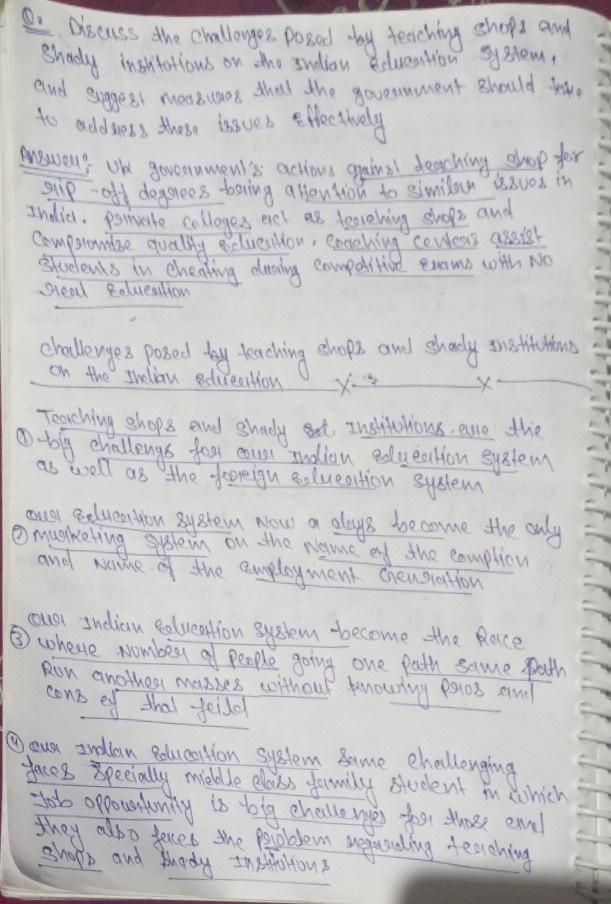 Q. Discuss the challenges posed by teaching shops and
shady institutions on the Indian Education system,
and suggest measures that the government should take
to address these issues effectively
Answer: UK government's actions against teaching shop for
rip-off degrees bring attention to similar issues in
India. private colleges act as teaching shops and
compromise quality education, coaching centers assist
students in cheating during competitive exams with No
real Education
challenges posed by teaching shops and shady institutions
on the Indian education X X
Teaching shops and shady Institutions are the
① big challengs for our Indian education system
as well as the foreign education system
our Education system Now a days become the only
② marketing system on the Name of the comption
and Name of the employment Genration
our Indian Education system become the Race
③ where Number of people going one path same path
Run another masses without knowing pros and
cons of that feild
④ our Indian Education system same challenging
faces specially middle class family student in which
Job opportunity is big challenges for those and
they also faces the problem regarding teaching
shops and shady Institutions